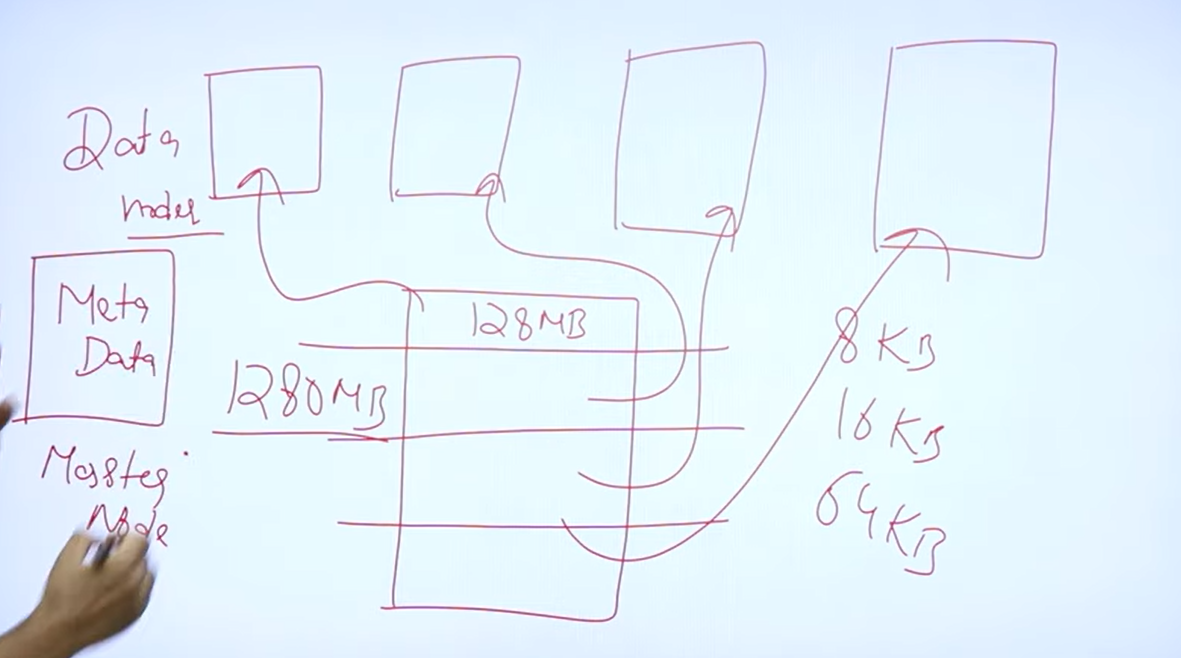 Data
nodes
Meta
Data
Master
Node
128MB
1280MB
8 KB
16 KB
64 KB